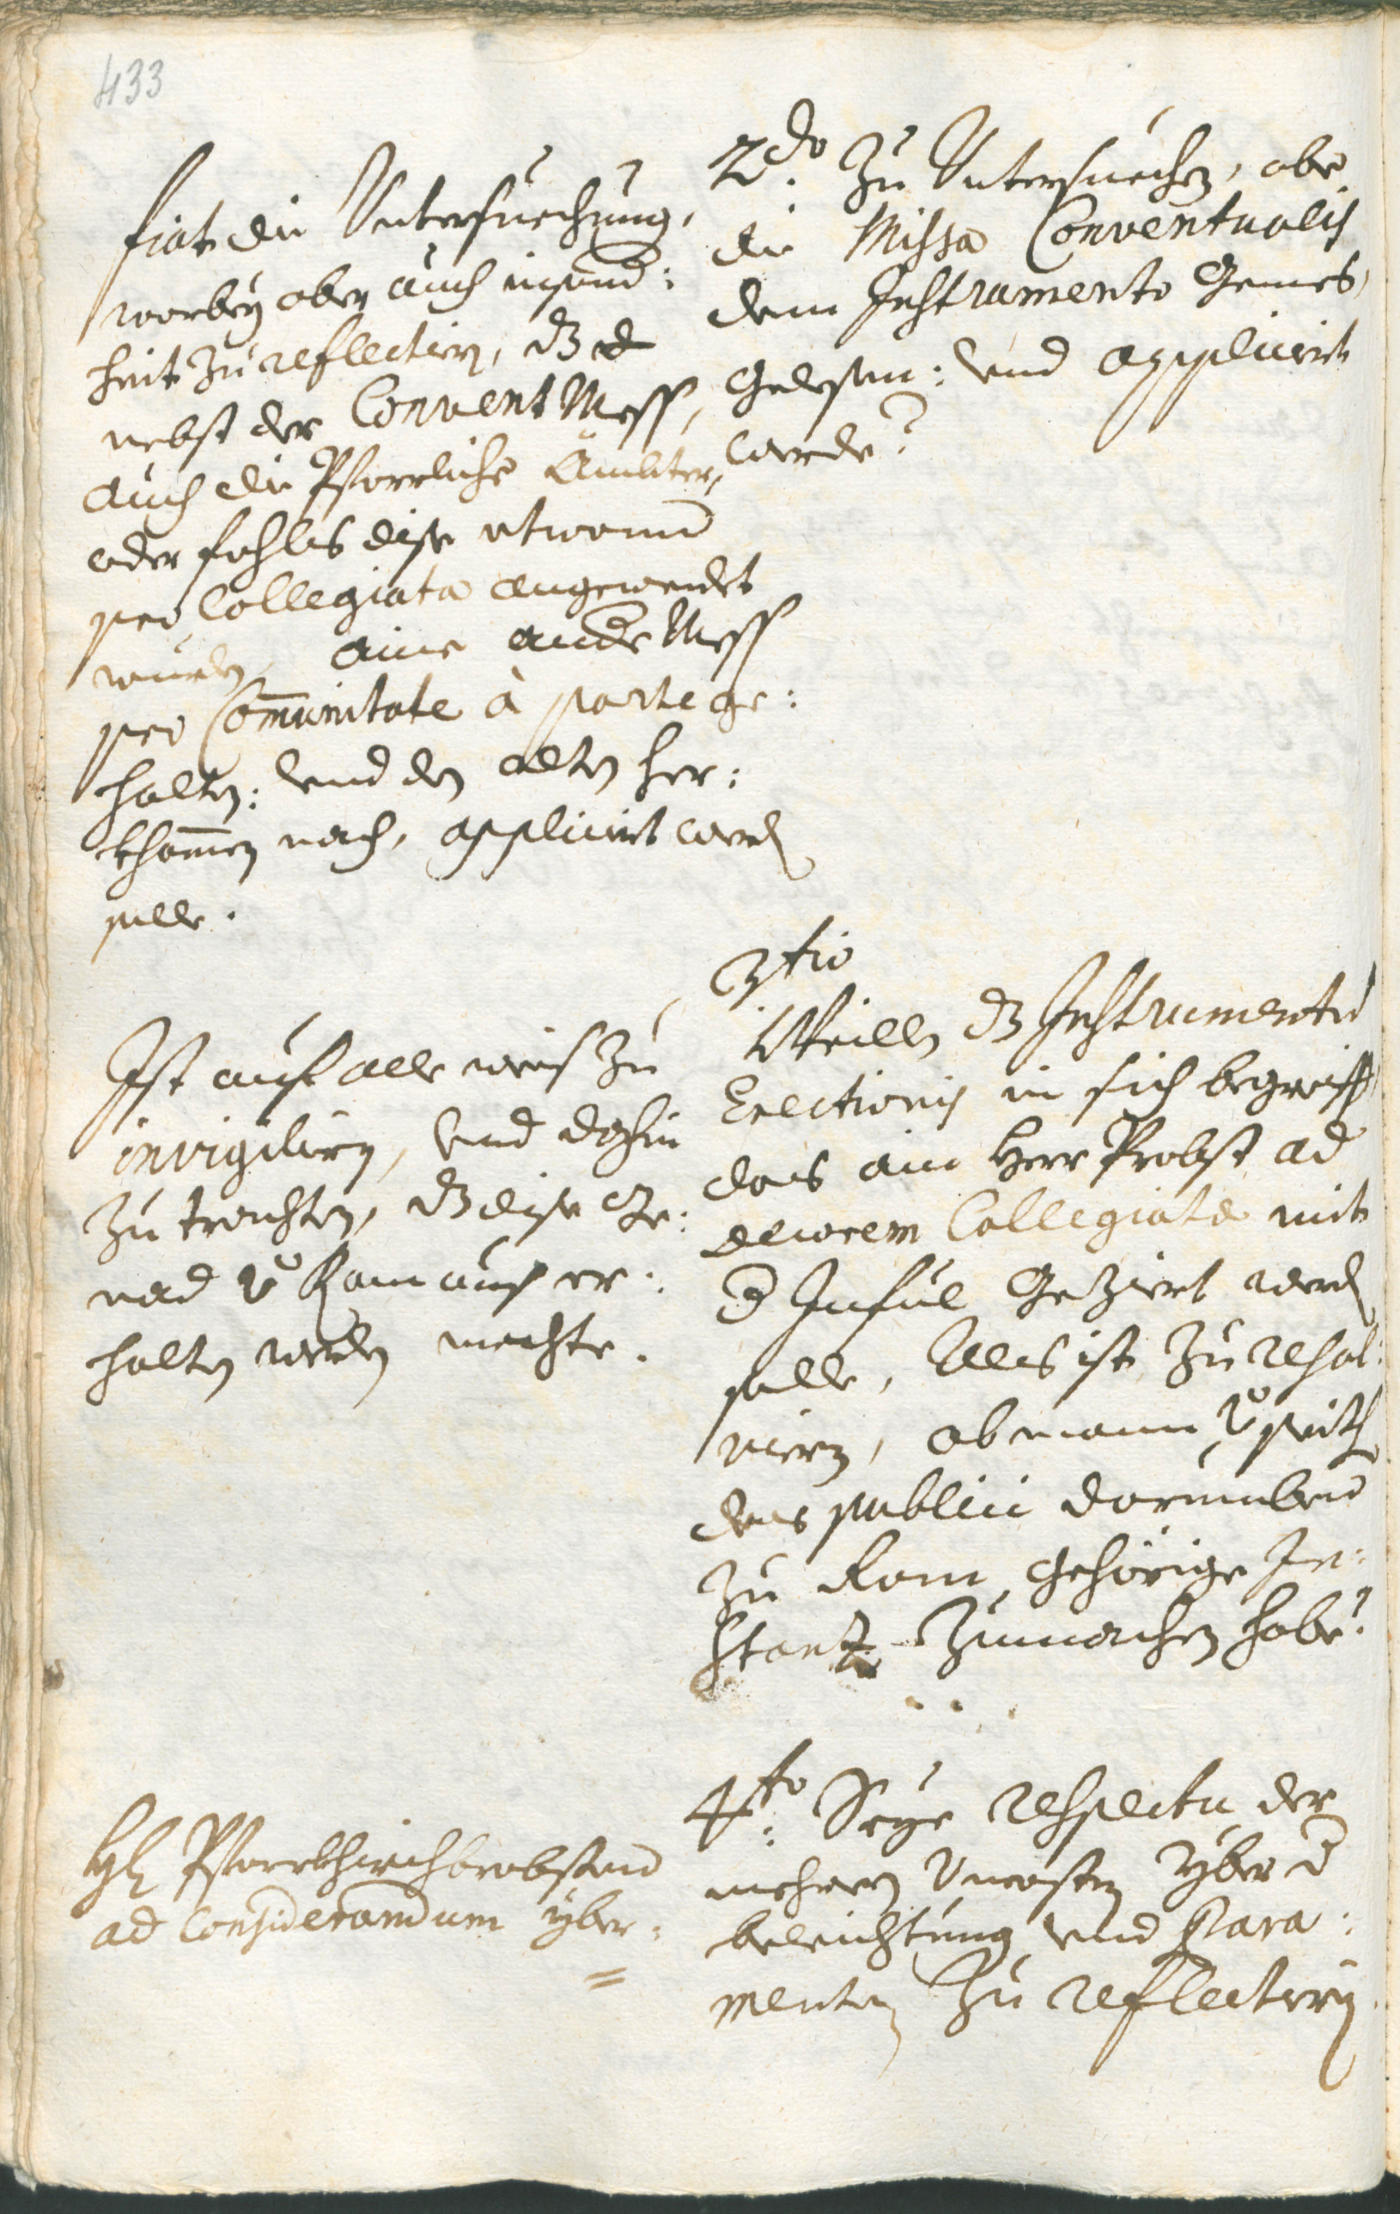 433
fiat die Untersuechung,
worbey aber auch insond:
heit zu reflectiern, dz
nebst der Convent Mess,
auch die Pfarrliche Ämbter,
oder fahls dise etwann
pro Collegiata angewendet
wurden, aine andre Mess
pro Communitate à parte ge:
halten: und den alten her:
khommen nach, applicirt werden
solle.
Ist auf alle weis zu
invigilirn, und dahin
zu trachten, dz dise Ge:
nad zu Rom auch er:
halten werden mechte.
H Pfarrkhirchbrobsten
ad Considerandum yber:
=
2do. Zu Untersuechen, ob
die Missa Conventualis
dem Instrumento Gemes,
Gelesen: und applicirt
werde?
3tio
Weillen dz Instrumentum
Erectionis in sich begreiff
das ain Herr Probst ad
decorem Collegiatæ mit
d Inful Geziert werden
solle, Als ist zu resol:
viern, ob mann
des publici darumben
zu Rom gehörige In:
stanz zumachen habe?
4to: Seye respectu der
mehrern Uncosten yber d
beleichtung und Para:
menten zu reflectirn